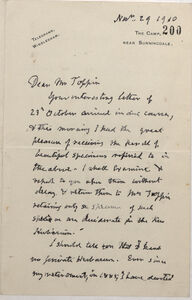 Novr 29 1910
TELEGRAMS,
WINDLESHAM.
THE CAMP,
NEAR SUNNINGDALE.
200
Dear Mr Toppin
Your interesting letter of
23d October arrived in due course,
& this morning I had the great
pleasure of receiving the parcel of
beautiful specimens referred to in
the above. I shall examine &
report to you upon them without
delay & return them to Mr Toppin
retaining only a specimen of such
species as are desiderata in the Kew
Herbarium.
I should tell you that I have
no private Herbarium. Ever since
my retirement, in 1885, I have devoted